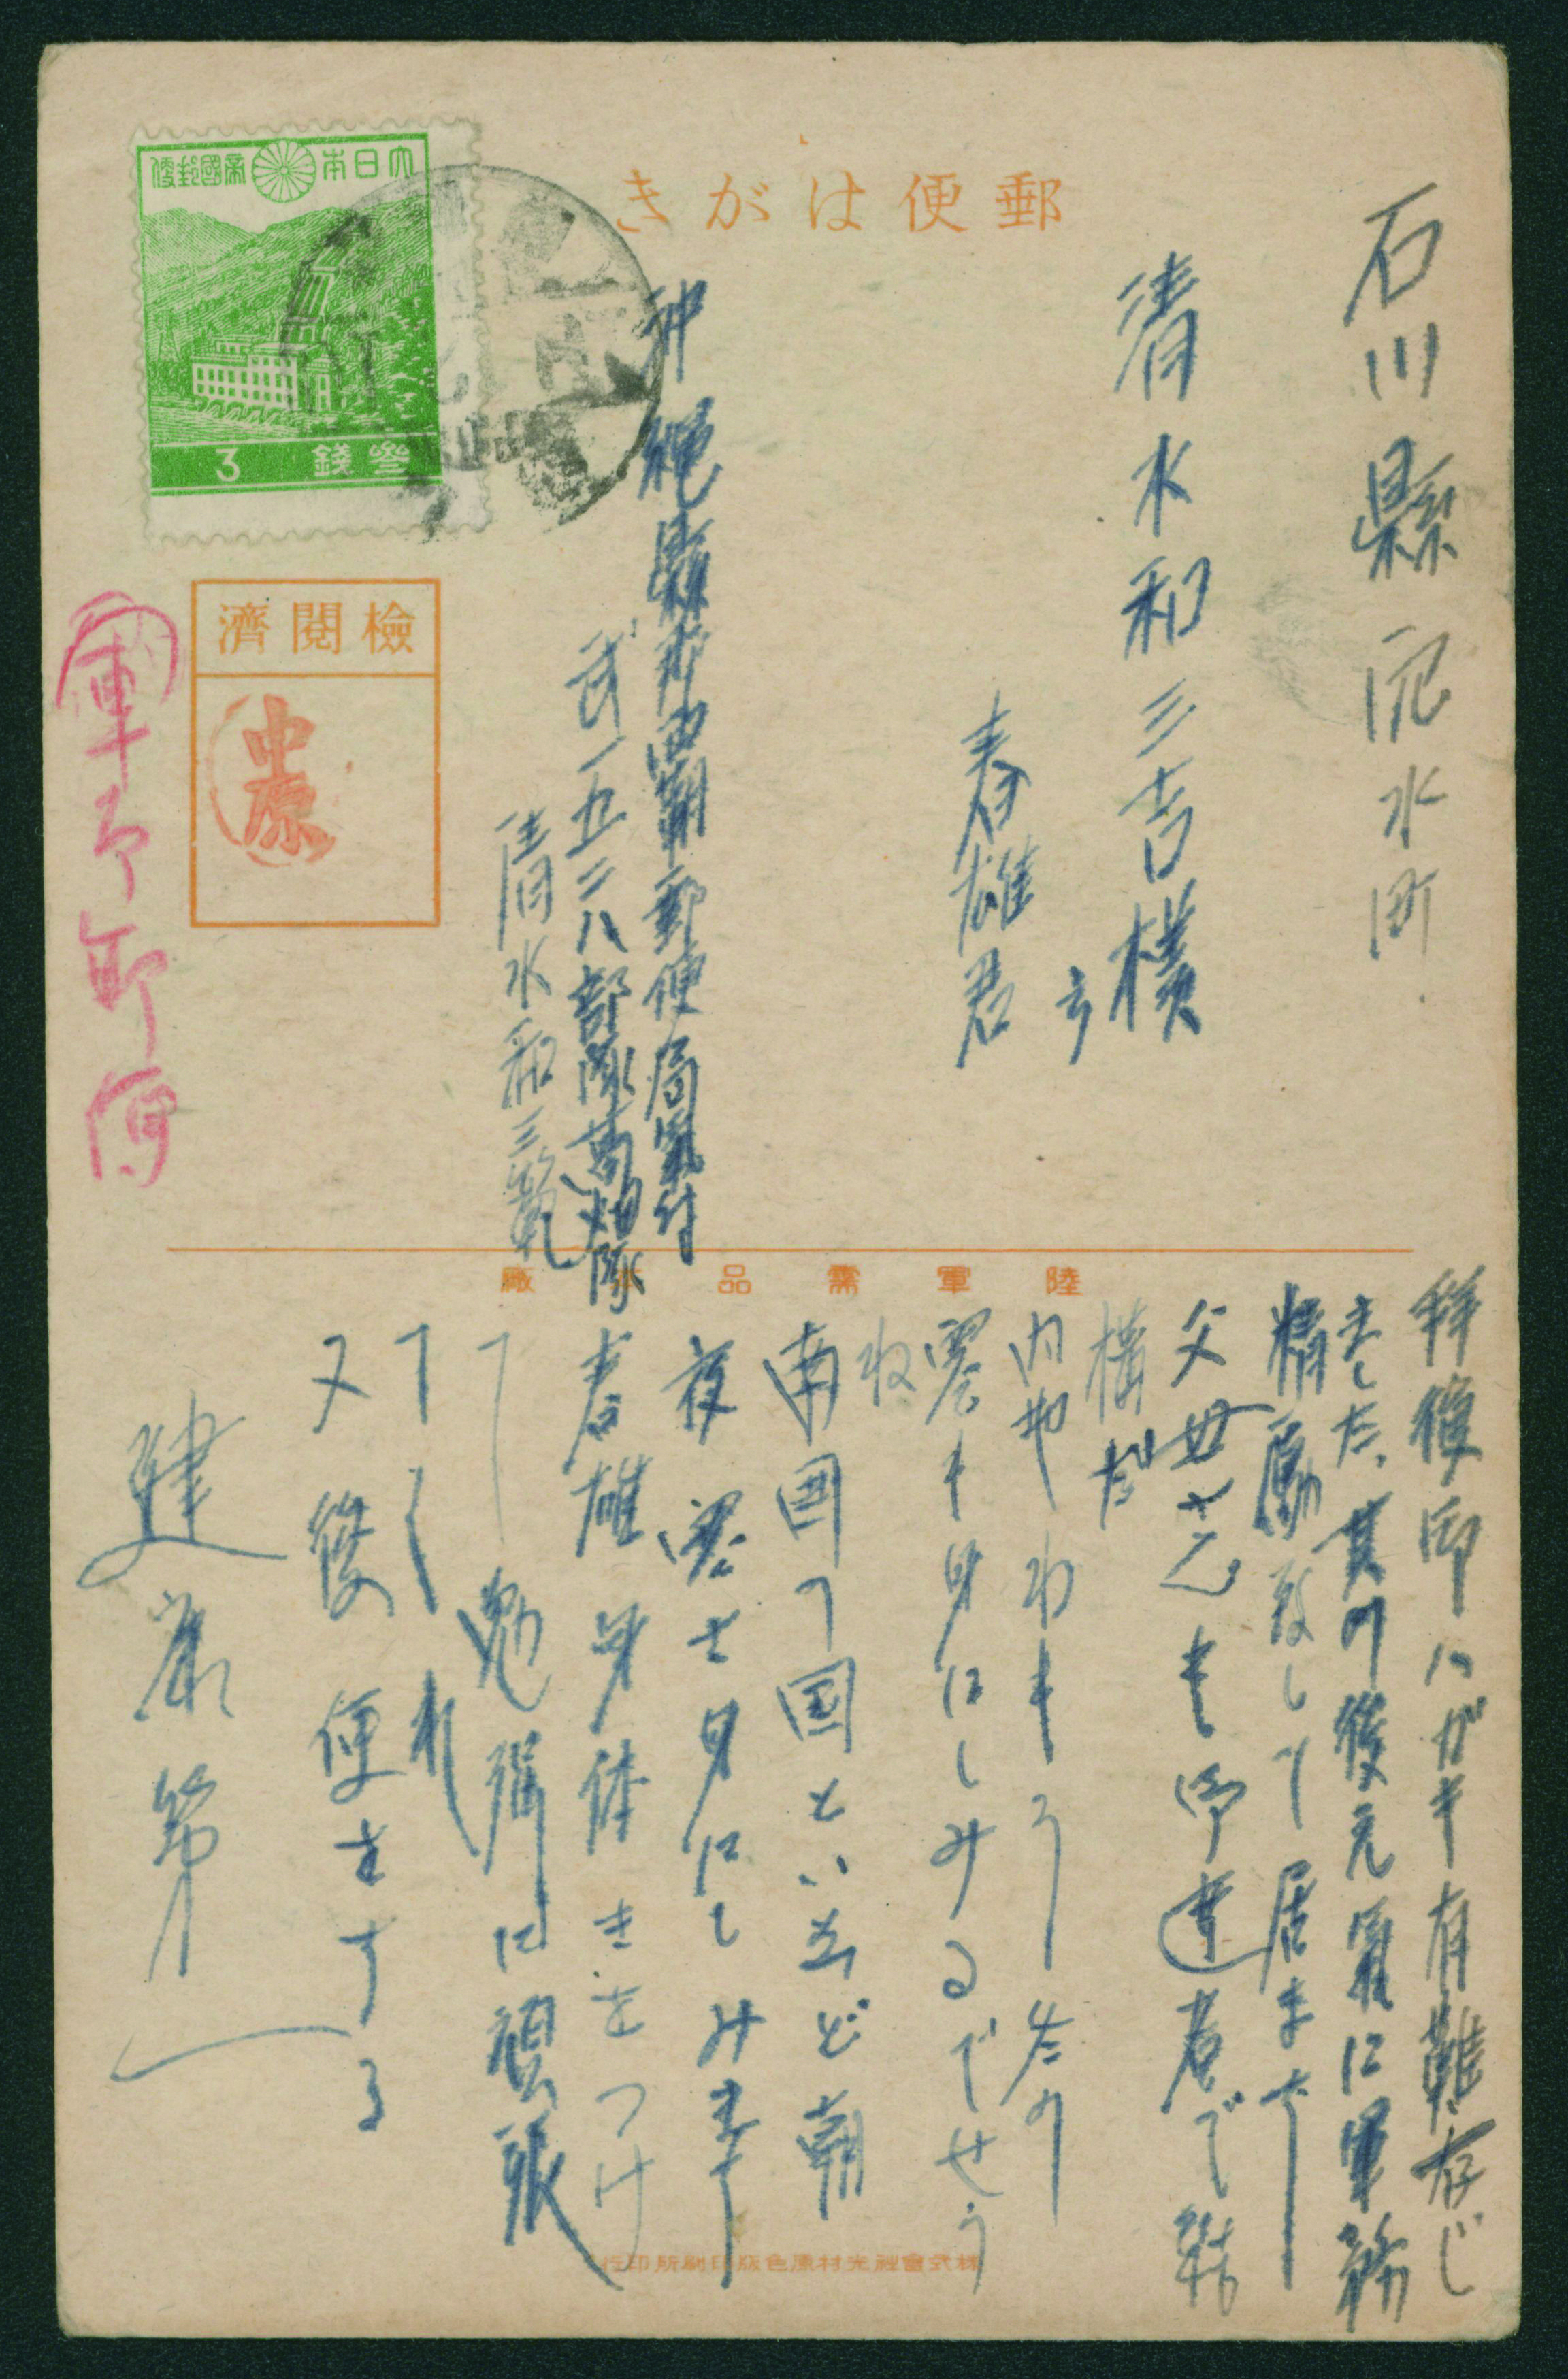 郵便はがき
大日本帝國郵便
3 錢參
檢閱濟
中原
軍事郵便
石川縣 水町
清水和三吉様
春雄君
沖縄縣那覇郵便局氣付
武一五二八部隊 隊
清水和三
陸軍需品本廠
拝復御ハガキ有難存じ
ました、其の後元氣に軍務
精励致して居ます
父母さんも御達者で結
構だ
内地わもう北の
寒も身にしみるでせう
ね
南国の国といえど朝
夜寒さ身にしみます
春雄身体きをつけ
て勉強に頑張
てくれ
又後便きする
建康第一
株式會社光村原色版印刷所印行